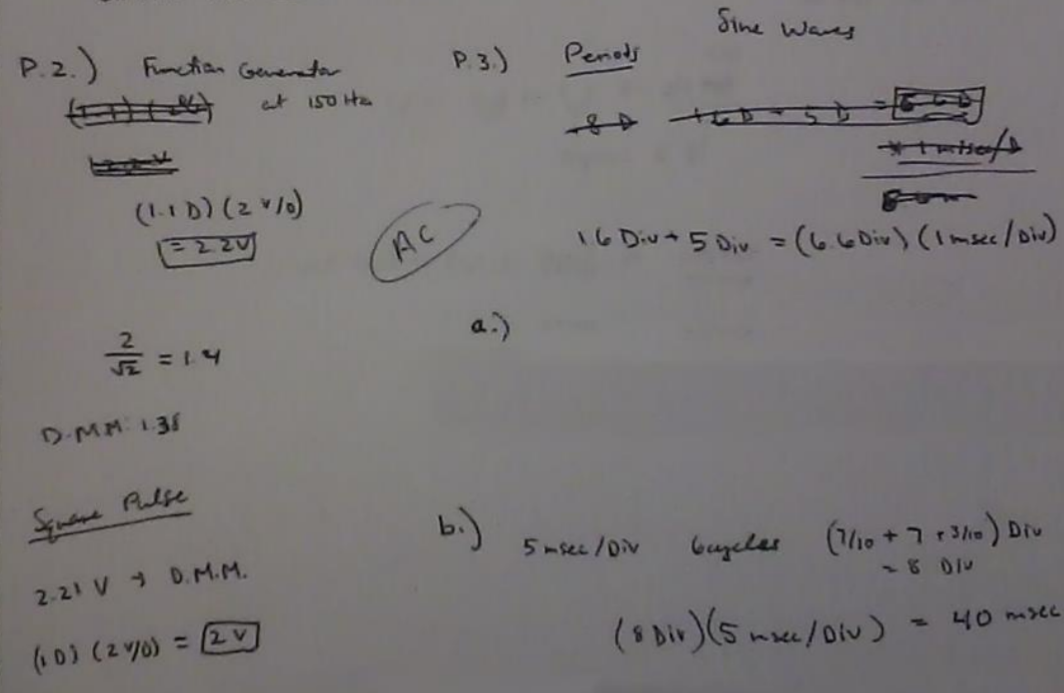 P.2.) Function Generator
at 150 Hz
(1.1 D) (2 v/D)
= 2.2V
AC
2/√2 = 1.4
D.M.M: 1.38
Square Pulse
2.21 V → D.M.M.
(1 D) (2 v/D) = 2 V
Sine Waves
P.3.) Periods
1.6 Div + 5 Div = (6.6 Div) (1 msec/Div)
a.)
b.) 5 msec/Div 6 cycles (7/10 + 7 + 3/10) Div
= 8 Div
(8 Div)(5 msec/Div) = 40 msec